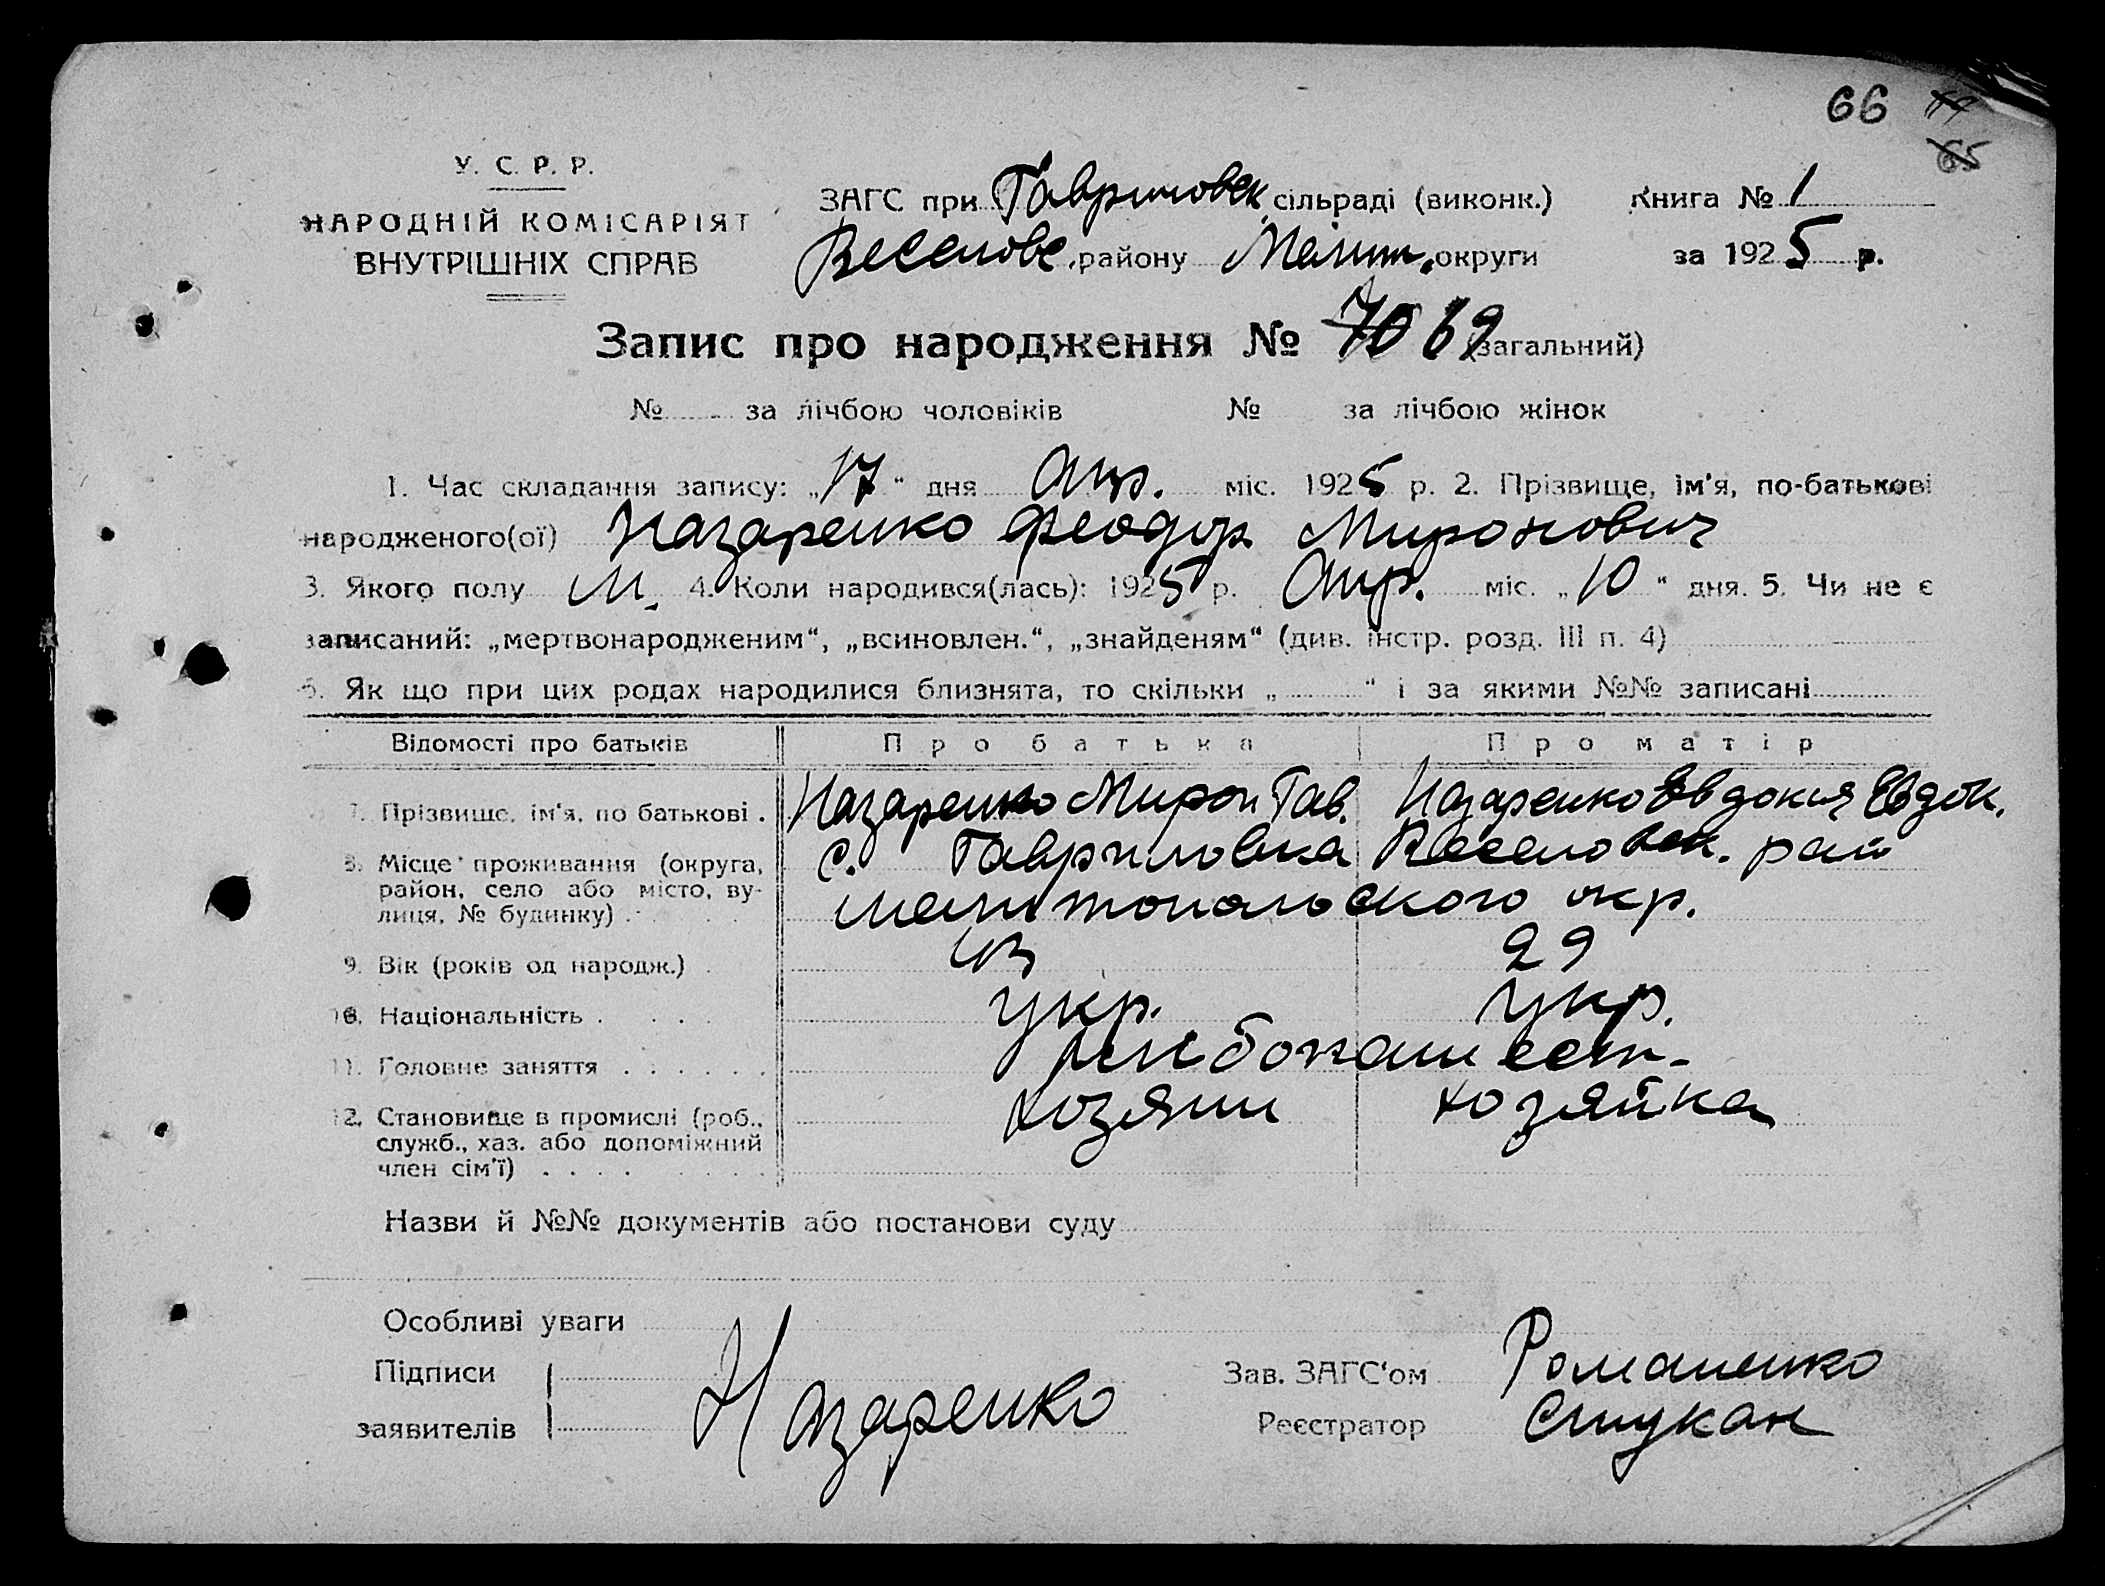 66
65
У. С. Р. Р.
НАРОДНІЙ КОМІСАРІЯТ
ВНУТРІШНІХ СПРАВ
ЗАГС при Гавриловск сільраді (виконк.) Книга № 1
Веселовс. району Мелит. округи за 1925 р.
Запис про народження № 70 69 (загальний)
№ за лічбою чоловіків № за лічбою жінок
1. Час складання запису: „17“ дня Апр. міс. 1925 р. 2. Прізвище, ім'я, по-батькові
народженого(ої) Назаренко Феодор Миронович
3. Якого полу М. 4. Коли народився(лась): 1925 р. Апр. міс. „10“ дня. 5. Чи не є
записаний: „мертвонародженим“, „всиновлен.“, „знайденям“ (див. інстр. розд. III п. 4)
6. Як що при цих родах народилися близнята, то скільки „ “ і за якими №№ записані
Відомості про батьків Про батька Про матір
7. Прізвище, ім'я, по батькові . Назаренко Мирон Гав. Назаренко Евдокия Евдок.
8. Місце проживання (округа, район, село або місто, вулиця, № будинку) . с. Гавриловка Веселовск. рай
мелитопольского окр.
9. Вік (років од народж.) . 43 29
10. Національність . . . . укр. укр.
11. Головне заняття . . . . . . хлебопашест.
12. Становище в промислі (роб., служб., хаз. або допоміжний член сім'ї) . . . . хозяин хозяйка
Назви й №№ документів або постанови суду
Особливі уваги
Підписи
заявителів Назаренко
Зав. ЗАГС'ом Романенко
Реєстратор